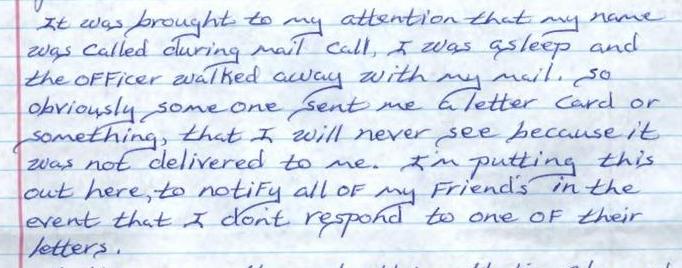 It was brought to my attention that my name
was called during mail call, I was asleep and
the officer walked away with my mail. so
obviously some one sent me a letter card or
something, that I will never see because it
was not delivered to me. I'm putting this
out here, to notify all of my Friend's in the
event that I don't respond to one of their
letters.